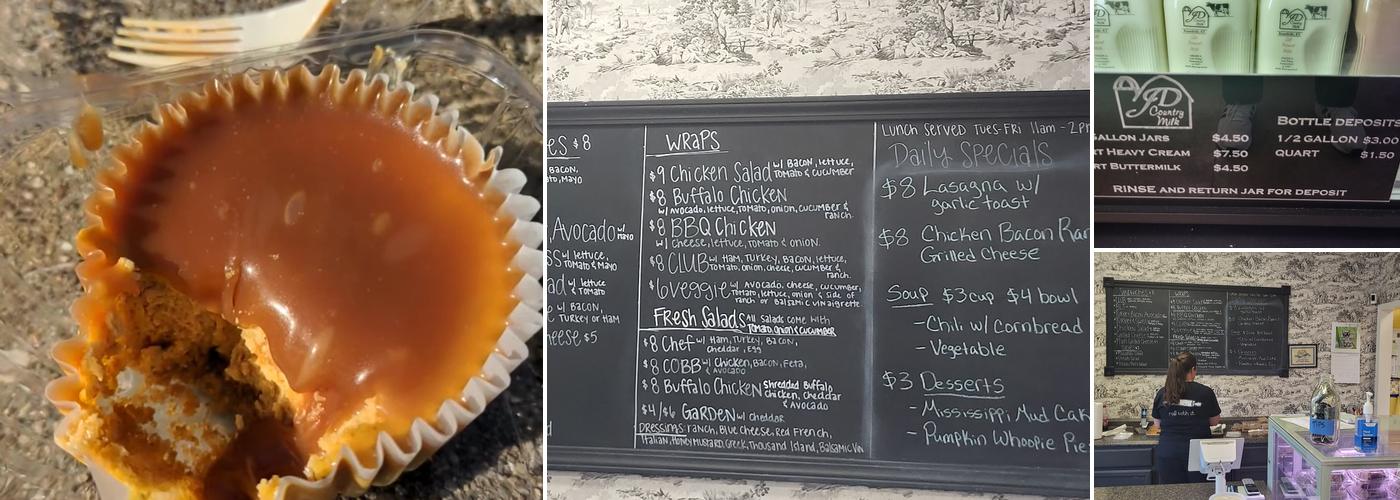 es $8
Bacon,
to, Mayo
Avocado w/ Mayo
ss w/ lettuce,
Tomato & Mayo
ad w/ lettuce
& Tomato
w/ Bacon,
Turkey or Ham
heese $5
Wraps
$9 Chicken Salad w/ Bacon, lettuce,
Tomato & Cucumber
$8 Buffalo Chicken
w/ Avocado, lettuce, tomato, onion, cucumber &
ranch.
$8 BBQ Chicken
w/ Cheese, lettuce, tomato & onion.
$8 Club w/ Ham, Turkey, Bacon, lettuce,
Tomato, onion, cheese, cucumber &
ranch.
$6 Veggie w/ Avocado, cheese, cucumber,
Tomato, lettuce, onion & side of
ranch or Balsamic Vinaigrette.
Fresh Salads All Salads come with
Tomato, Onion & Cucumber
$8 Chef w/ Ham, Turkey, Bacon,
Cheddar, Egg
$8 COBB w/ Chicken, Bacon, Feta,
& Avocado
$8 Buffalo Chicken Shredded Buffalo
chicken, cheddar
& Avocado
$4/$6 Garden w/ Cheddar
Dressings: Ranch, Blue Cheese, Red French,
Italian, Honey Mustard, Greek, Thousand Island, Balsamic Vin
Lunch served Tues-Fri 11am-2pm
Daily Specials
$8 Lasagna w/
garlic toast
$8 Chicken Bacon Ran
Grilled Cheese
Soup $3 cup $4 bowl
- Chili w/ Cornbread
- Vegetable
$3 Desserts
- Mississippi Mud Cak
- Pumpkin Whoopie Pie
JD
Country
Milk
GALLON JARS $4.50
RT HEAVY CREAM $7.50
RT BUTTERMILK $4.50
BOTTLE DEPOSITS
1/2 GALLON $3.00
QUART $1.50
RINSE AND RETURN JAR FOR DEPOSIT
WRAPS
roll with it
TIPS